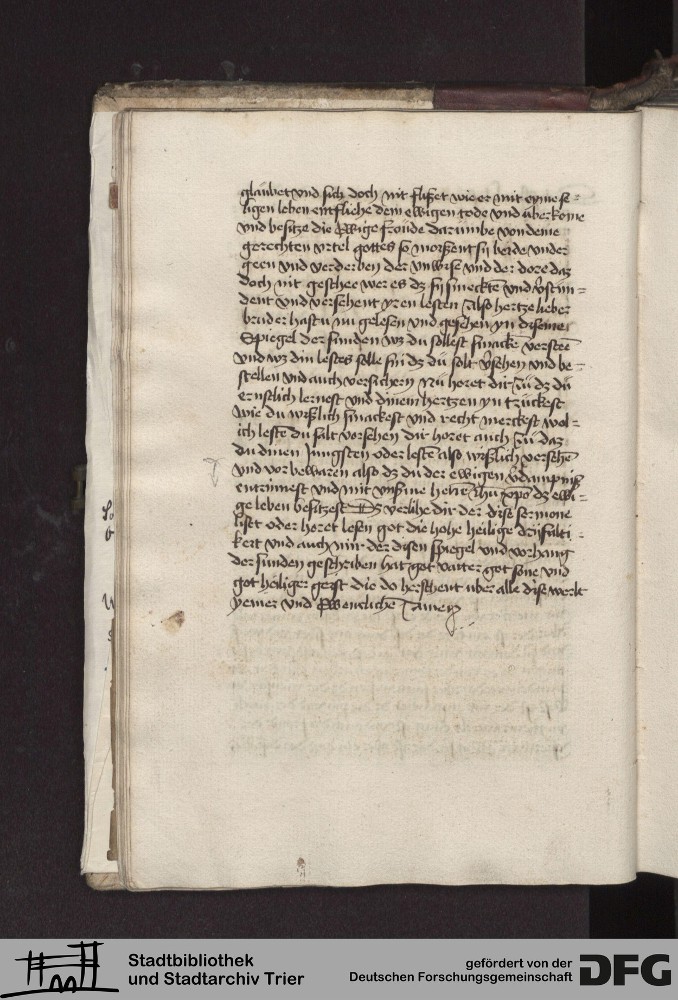 glaubet vnd sich doch nit flisset wie er mit eyme se-
ligen leben entfliehe dem ewigen tode vnd uberkome
vnd besitze die Ewige freude dar vmbe von deme
gerechten vrtel gottes so mossent sij beide vnder
geen vnd verderben der vnwise vnd der dore daz
doch nit geschee wer es dz sij smeckte vnd v̄stun-
dent vnd versehent yren lesten Also hertze lieber
bruder hastu nu gelesen vnd gesehen yn diseme
Spiegel der sunden wz du sollest smackē versteē
vnd wz din lestes solle sin dz du salt v̄sehen vnd be-
stellen vnd auch versichern Nu horet dir zu dz du
ernstlich lernest vnd dinem hertzen yn truckest
wie du wißlich smackest vnd recht merckest wol-
ich leste du salt vorsehen dir horet auch zu daz
du dinen Jungsten oder leste also wißlich versehē
vnd vor bewaren also dz du der ewigen v̄dampniß
entrinnest vnd mit vnßme herrē ihū xp̄o dz ewi-
ge leben besitzest Dz verlihe dir der dise sermone
liset oder horet lesen got die hohe heilige drifalti-
keit vnd auch mir der disen spiegel vnd vorhang
der sunden geschriben hat got vatter got sone vnd
got heiliger geist die do herschent uber alle dise werlt
ymer vnd Ewenclichē Amen
Stadtbibliothek
und Stadtarchiv Trier
gefördert von der
Deutschen Forschungsgemeinschaft
DFG